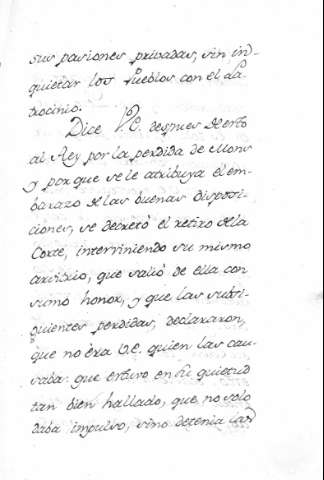 sus pasiones privadas, sin in-
quietar los Pueblos con el La-
trocinio.
Dice V.E. despues de esto
al Rey por la perdida de Mons
y porque se le atribuya el em-
barazo de las buenas disposi-
ciones, se decretò el retiro de la
Corte, interviniendo su mismo
arvitrio, que saliò de ella con
sumo honor, y que las subsi-
guientes perdidas, declararon,
que no èra V.E. quien las cau-
saba: que estuvo en su quietud
tan bien hallado, que no solo
daba impulso, sino detenia las